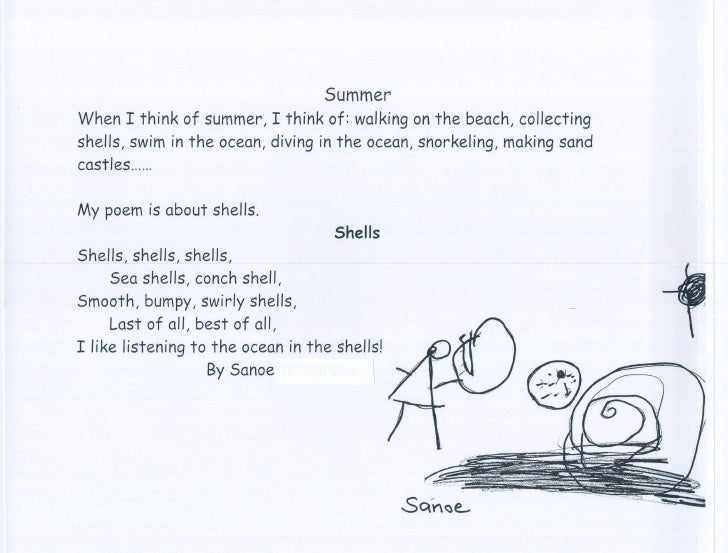 Summer
When I think of summer, I think of: walking on the beach, collecting
shells, swim in the ocean, diving in the ocean, snorkeling, making sand
castles……
My poem is about shells.
Shells
Shells, shells, shells,
Sea shells, conch shell,
Smooth, bumpy, swirly shells,
Last of all, best of all,
I like listening to the ocean in the shells!
By Sanoe
Sanoe